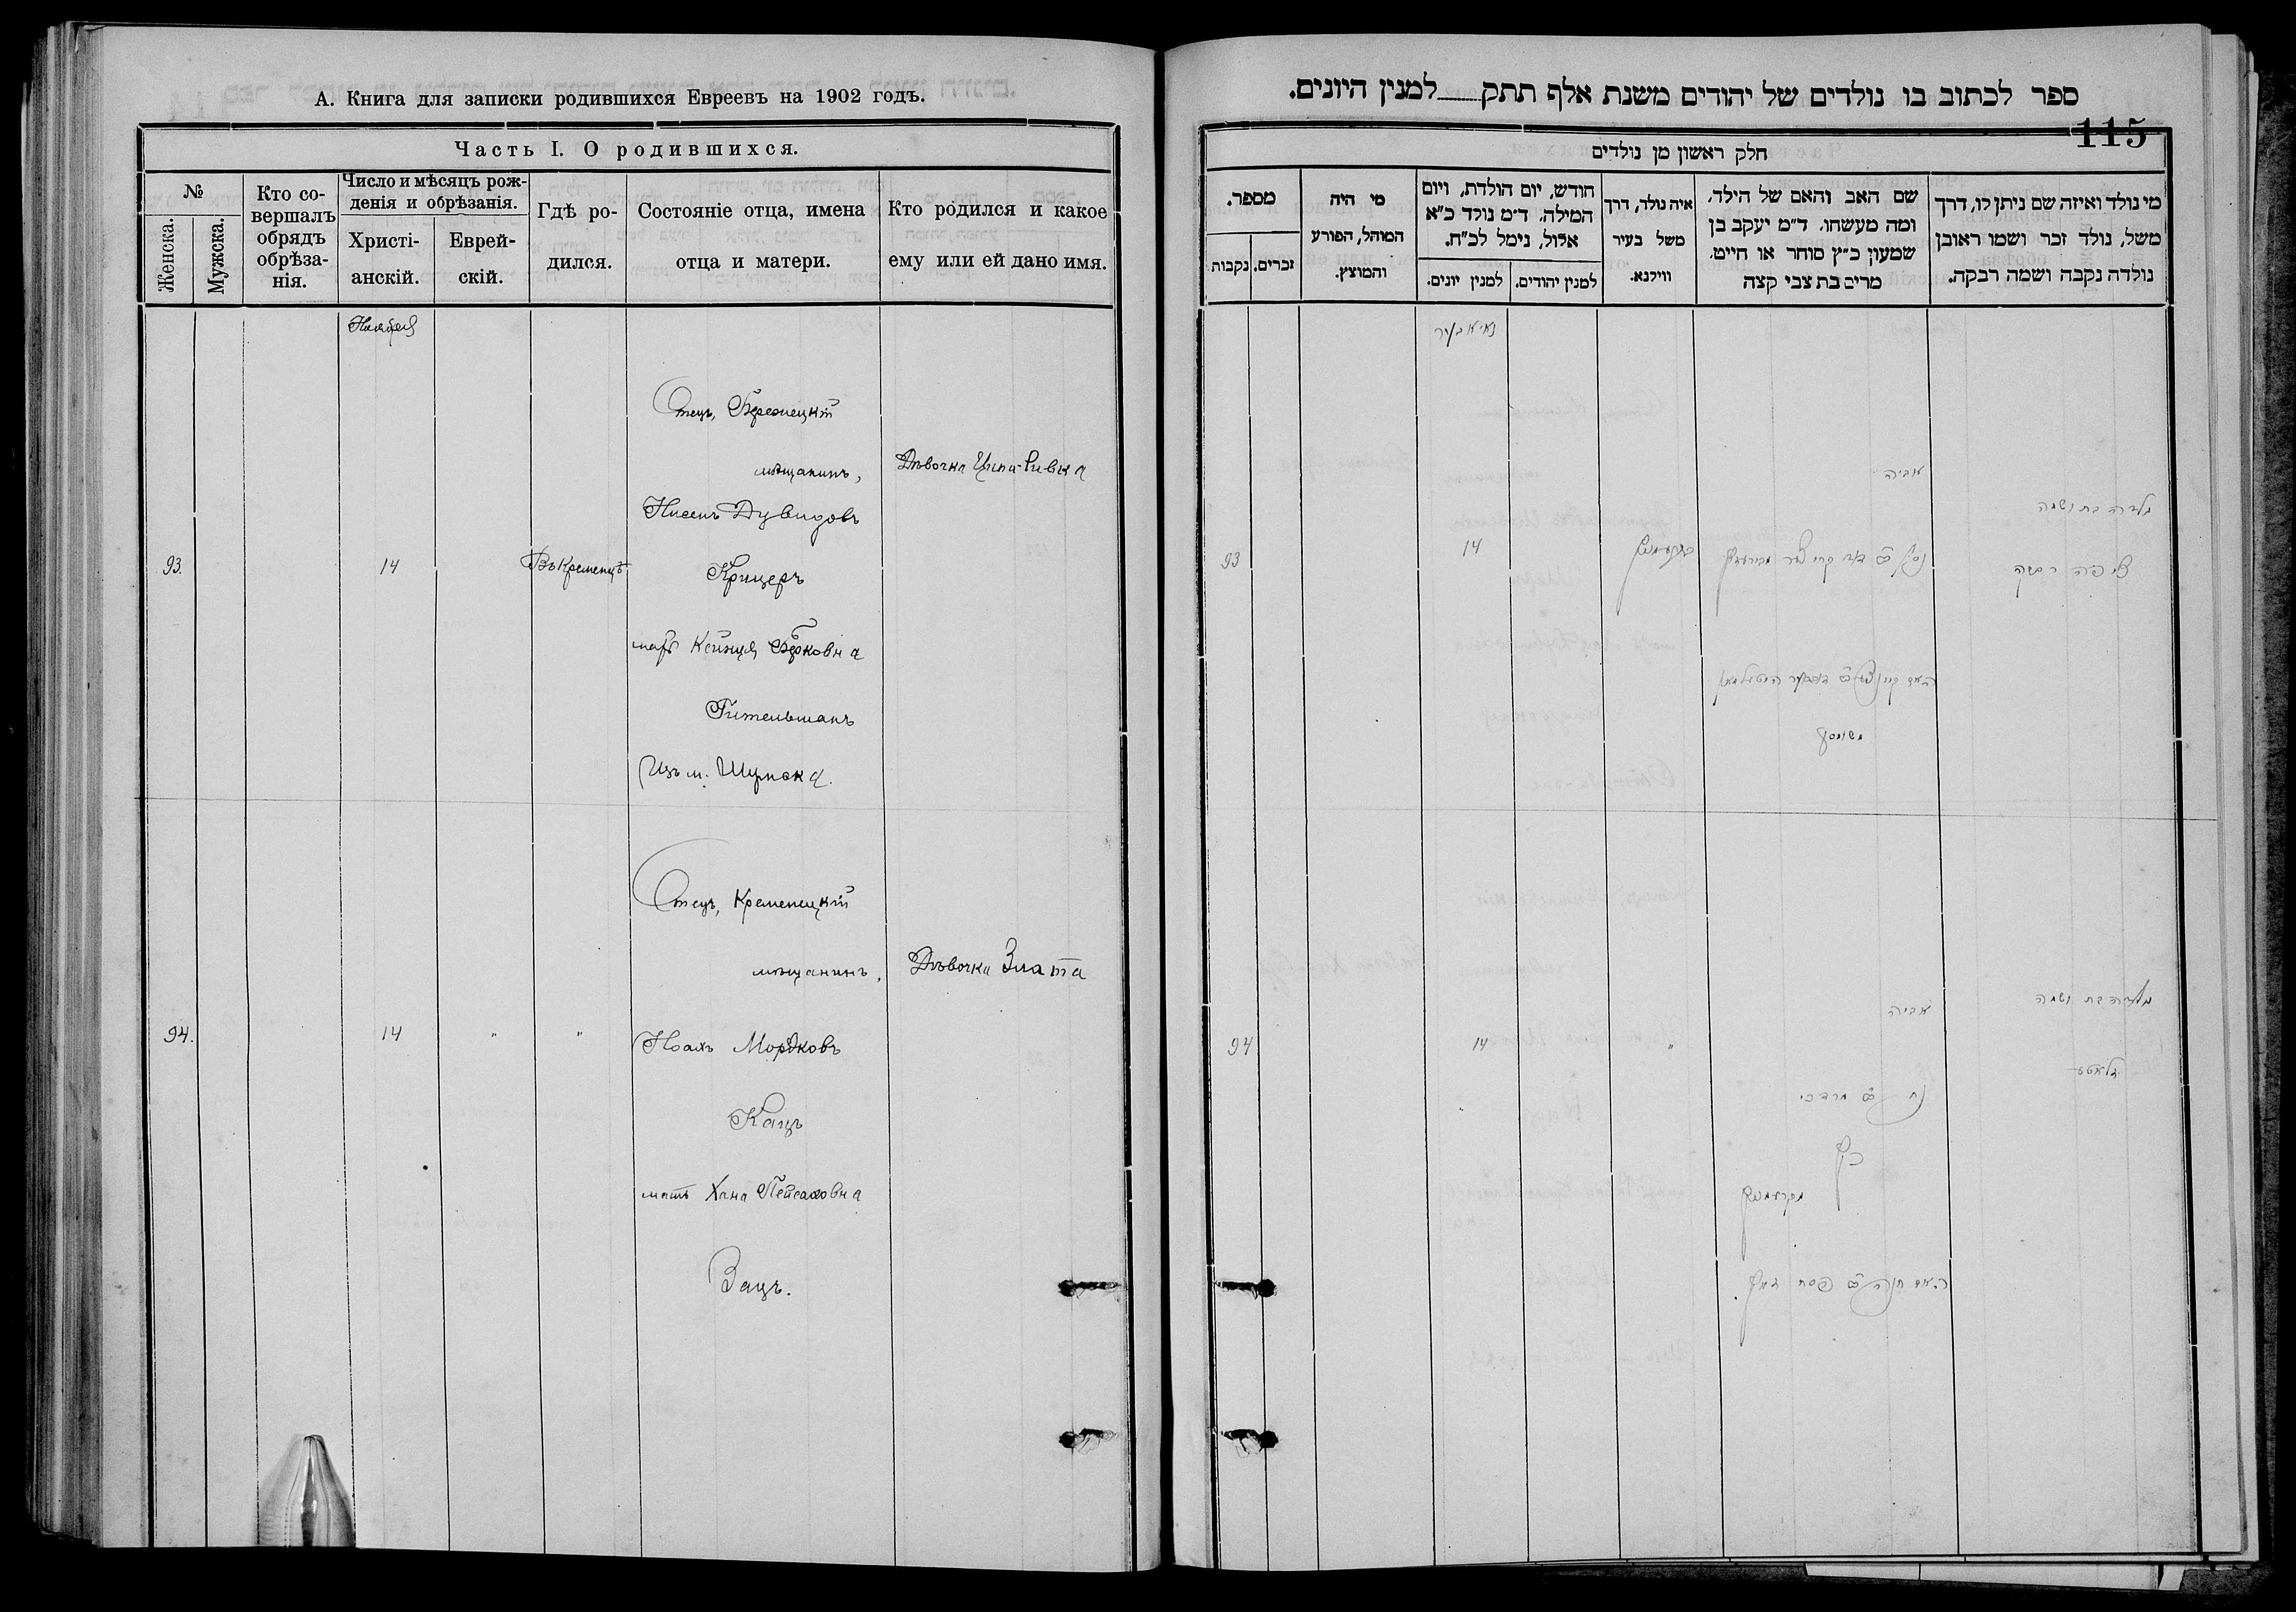 А. Книга для записки родившихся Евреевъ на 1902 годъ.
Часть I. О родившихся.
№
Женска.
Мужска.
Кто со-
вершалъ
обрядъ
обрѣза-
нія.
Число и мѣсяцъ рож-
денія и обрѣзанія.
Христі-
анскій.
Еврей-
скій.
Гдѣ ро-
дился.
Состояніе отца, имена
отца и матери.
Кто родился и какое
ему или ей дано имя.
Ноября
Отецъ,
мѣщанинъ,
Дѣвочка Ципа-Ривка
Нисенъ Дувидовъ
93.
14
Въ Кременцѣ
Крицеръ
мать Кейнця Берковна
Гительманъ
Изъ м. Шумска.
Отецъ, Кременецкій
мѣщанинъ,
Дѣвочка Злата
94.
14
"
"
Ноахъ Мордковъ
Кацъ
мать Хана Пейсаховна
Зацъ.
ספר לכתוב בו נולדים של יהודים משנת אלף תתק למנין היונים.
115
חלק ראשון מן נולדים
מספר.
נקבות
זכרים.
מי היה
המוהל, הפורע
והמוצץ.
חודש, יום הולדת, ויום
המילה, ד״מ נולד כ״א
אלול, נימל לכ״ח.
למנין יונים.
למנין יהודים.
איה נולד, דרך
משל בעיר
ווילנא.
שם האב והאם של הילד,
ומה מעשהו, ד״מ יעקב בן
שמעון כ״ץ סוחר או חייט,
מרים בת צבי קצה
מי נולד ואיזה שם ניתן לו, דרך
משל, נולד זכר ושמו ראובן
נולדה נקבה ושמה רבקה.
נאיאבער
אביה
נולדה בת ושמה
93
14
ציפה רבקה
אביה
נולדה בת ושמה
94
14
"
זלאטע
נח ב״ר מרדכי
כץ
מקרעמניץ
האם חנה ב״ר פסח זאץ.